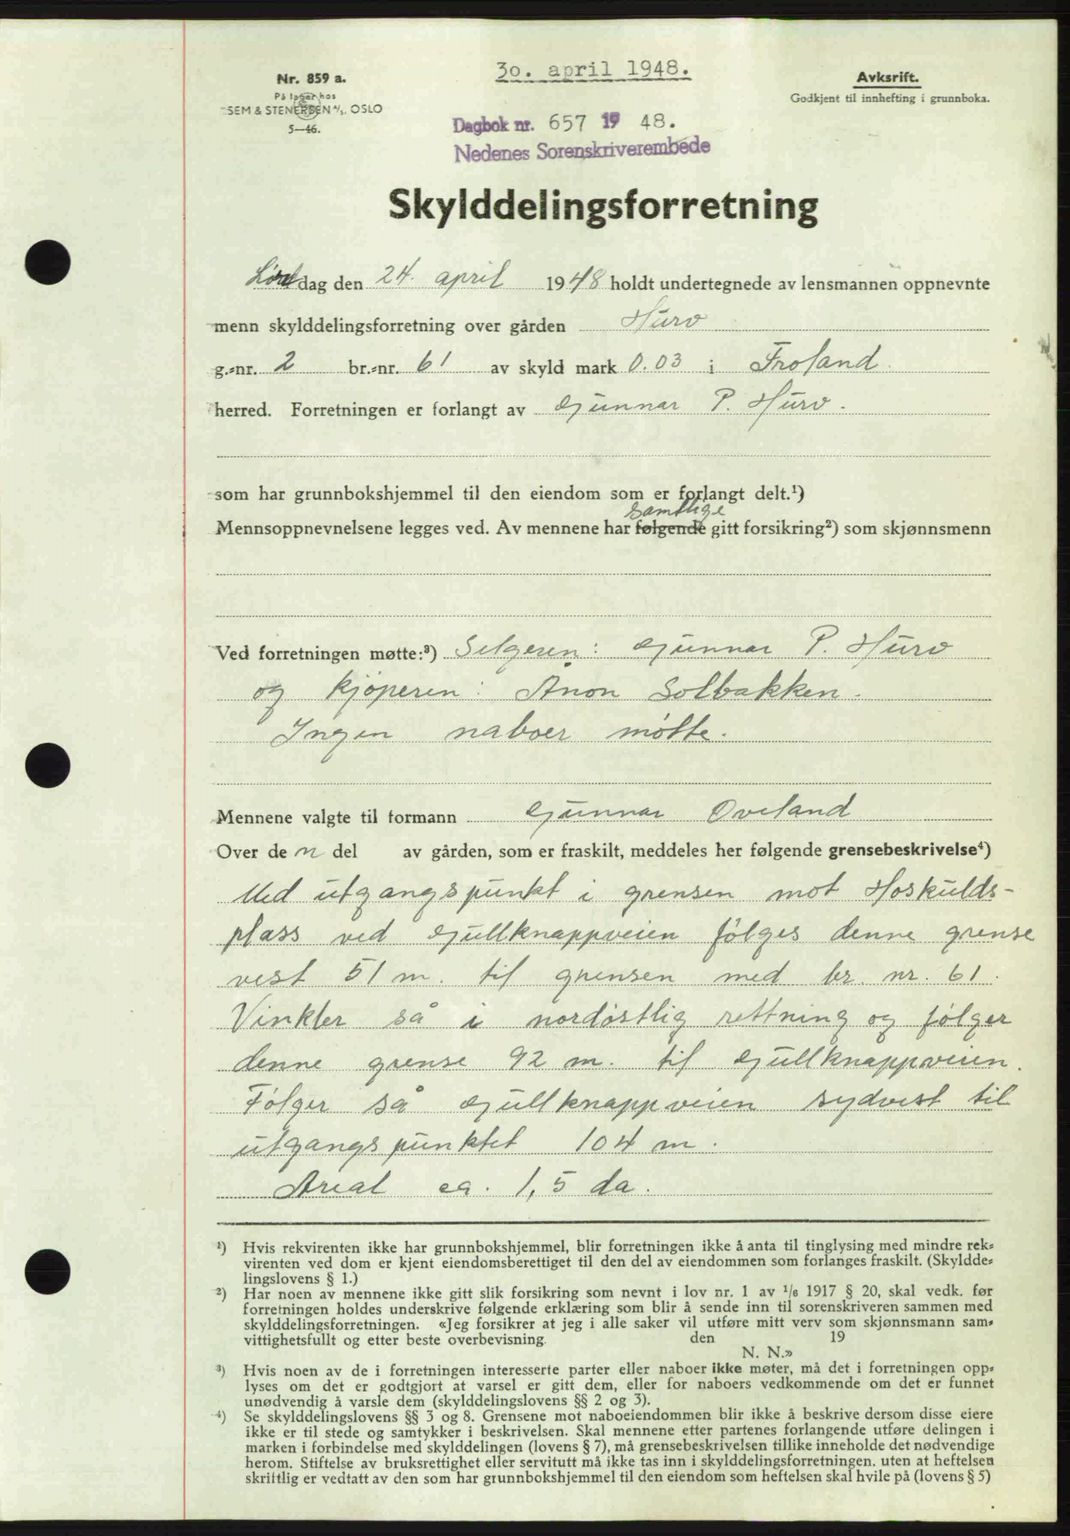 Nr. 859 a.
På lager hos
SEM & STENERSEN A/S, OSLO
5—46.
30. april 1948.
Avksrift.
Godkjent til innhefting i grunnboka.
Dagbok nr. 657 19 48.
Nedenes Sorenskriverembede
Skylddelingsforretning
Lørdag den 24. april 1948 holdt undertegnede av lensmannen oppnevnte
menn skylddelingsforretning over gården Hurv
g.-nr. 2 br.-nr. 61 av skyld mark 0.03 i Froland
herred. Forretningen er forlangt av Gunnar P. Hurv.
som har grunnbokshjemmel til den eiendom som er forlangt delt.¹)
samtlige
Mennsoppnevnelsene legges ved. Av mennene har følgende gitt forsikring²) som skjønnsmenn
Ved forretningen møtte:³) Selgeren: Gunnar P. Hurv
og kjøperen:Ånon Solbakken.
Ingen naboer møtte.
Mennene valgte til formann Gunnar Oveland
Over de n del av gården, som er fraskilt, meddeles her følgende grensebeskrivelse⁴)
Med utgangspunkt i grensen mot Hoskulds-
plass ved Gullknappveien følges denne grense
vest 51 m. til grensen med br. nr. 61.
Vinkler så i nordøstlig rettning og følger
denne grense 92 m. til Gullknappveien.
Følger så Gullknappveien sydvest til
utgangspunktet 104 m.
Areal ca. 1,5 da.
¹) Hvis rekvirenten ikke har grunnbokshjemmel, blir forretningen ikke å anta til tinglysing med mindre rek-
virenten ved dom er kjent eiendomsberettiget til den del av eiendommen som forlanges fraskilt. (Skyldde-
lingslovens § 1.)
²) Har noen av mennene ikke gitt slik forsikring som nevnt i lov nr. 1 av 1/6 1917 § 20, skal vedk. før
forretningen holdes underskrive følgende erklæring som blir å sende inn til sorenskriveren sammen med
skylddelingsforretningen. «Jeg forsikrer at jeg i alle saker vil utføre mitt verv som skjønnsmann sam-
vittighetsfullt og etter beste overbevisning. den 19
N. N.»
³) Hvis noen av de i forretningen interesserte parter eller naboer ikke møter, må det i forretningen opp-
lyses om det er godtgjort at varsel er gitt dem, eller for naboers vedkommende om det er funnet
unødvendig å varsle dem (skylddelingslovens §§ 2 og 3).
⁴) Se skylddelingslovens §§ 3 og 8. Grensene mot naboeiendommen blir ikke å beskrive dersom disse eiere
ikke er til stede og samtykker i beskrivelsen. Skal mennene etter partenes forlangende utføre delingen i
marken i forbindelse med skylddelingen (lovens § 7), må grensebeskrivelsen tillike inneholde det nødvendige
herom. Stiftelse av bruksrettighet eller servitutt må ikke tas inn i skylddelingsforretningen, uten at heftelsen
skriftlig er vedtatt av den som har grunnbokshjemmel til den eiendom som heftelsen skal hvile på (lovens § 5)